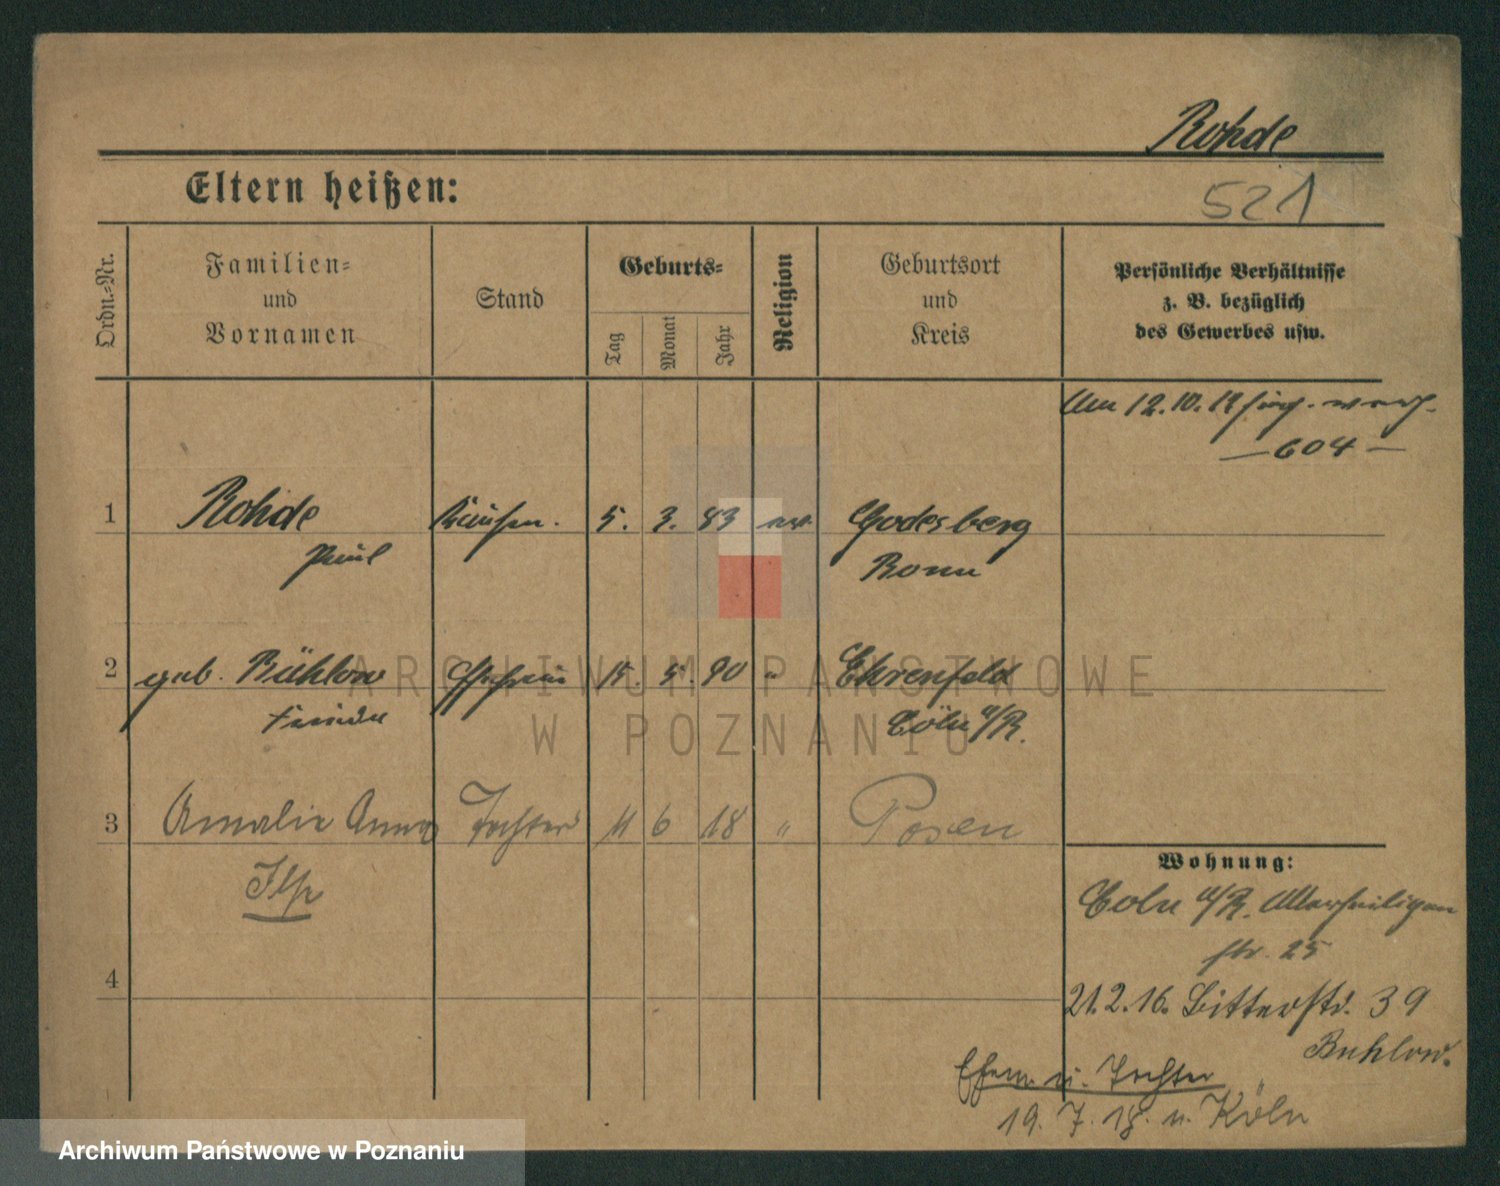 Rohde
Eltern heißen:
521
Ordn.-Nr.
Familien-
und
Vornamen
Stand
Geburts-
Tag
Monat
Jahr
Religion
Geburtsort
und
Kreis
Persönliche Verhältnisse
z. B. bezüglich
des Gewerbes usw.
Am 12. 10.
— 604 —
1 Rohde 5. 3. 83 Godesberg
Paul Bonn
2 geb. Bühlow Ehefrau 15. 5. 90 " Ehrenfeld
Cöln a/R.
3 Amalie Anna Tochter 11 6 18 " Posen
Ilse
4
Wohnung:
Coln a/R. Allerheiligen
str. 25
21. 2. 16. Bitterstr. 39
Buhlow.
Ehefr. u. Tochter
19. 7. 18. n. Köln
ARCHIWUM PAŃSTWOWE
W POZNANIU
Archiwum Państwowe w Poznaniu